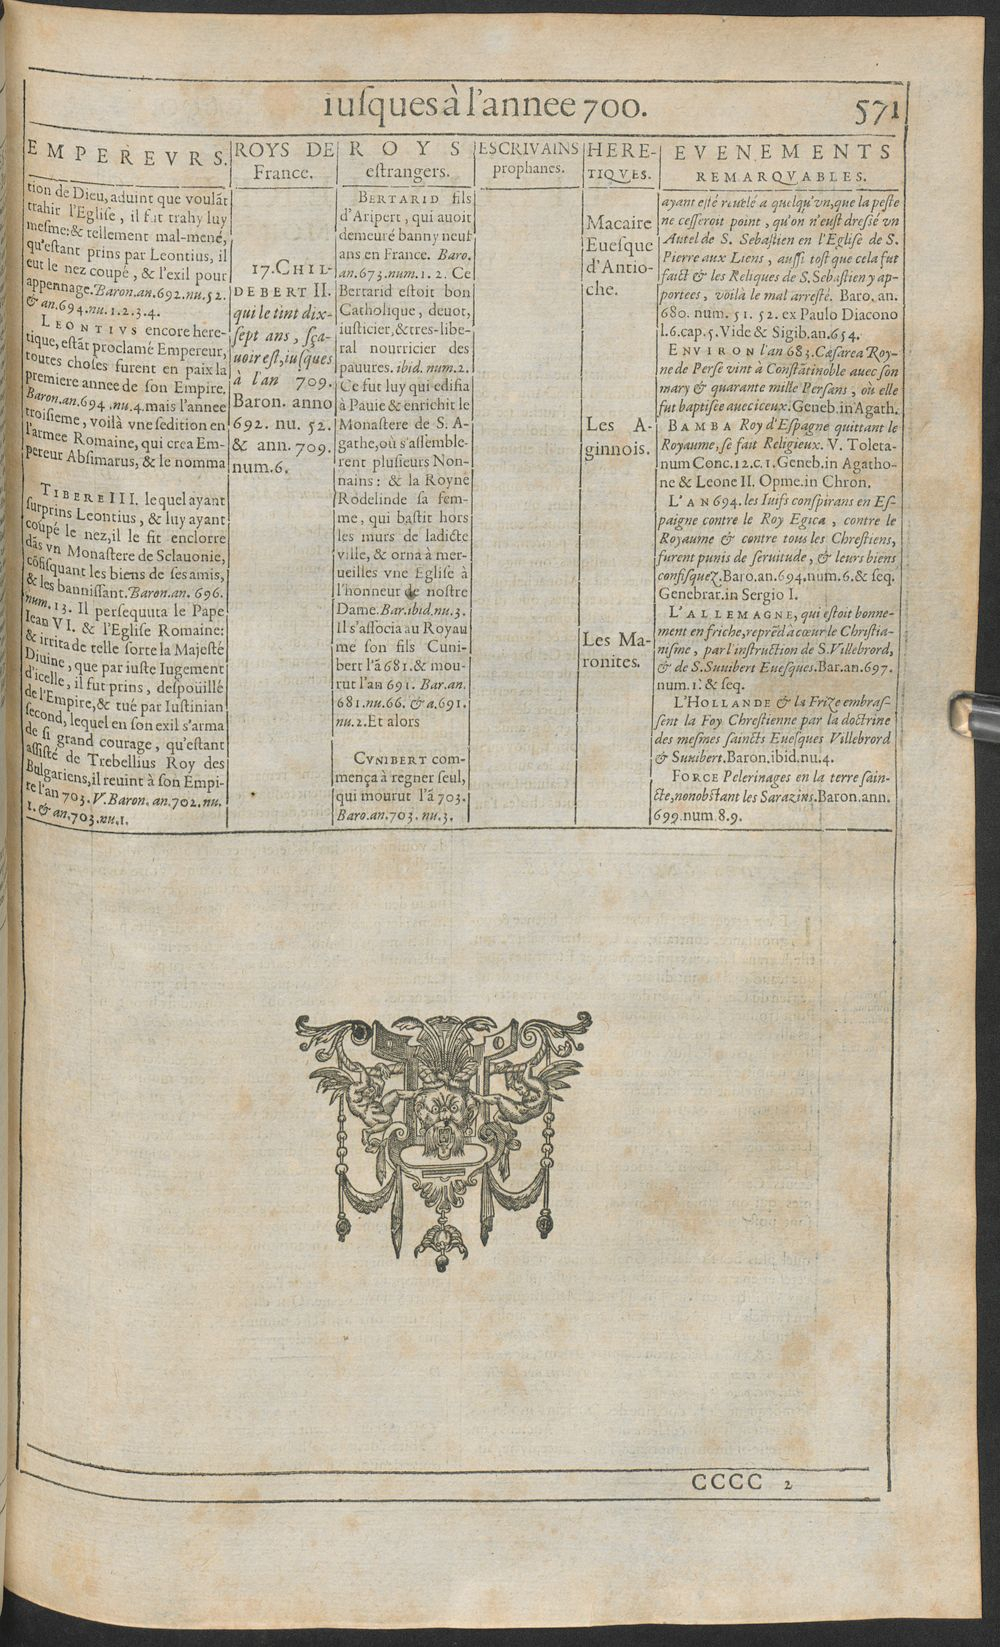 iuſques à l'annee 700.
571
EMPEREVRS.
tion de Dieu, aduint que voulãt
trahir l'Egliſe, il fut trahy luy
meſme: & tellement mal-mené,
qu'eſtant prins par Leontius, il
eut le nez coupé, & l'exil pour
appennage. Baron.an.692.nu.52.
& an.694.nu.1.2.3.4.
LEONTIVS encore here-
tique, eſtãt proclamé Empereur,
toutes choſes furent en paix la
premiere annee de ſon Empire.
Baron.an.694.nu.4. mais l'annee
troiſieme, voilà vne ſedition en
l'armee Romaine, qui crea Em-
pereur Abſimarus, & le nomma
TIBERE III. lequel ayant
ſurprins Leontius, & luy ayant
coupé le nez, il le fit enclorre
dãs vn Monaſtere de Sclauonie,
cõfiſquant les biens de ſes amis,
& les banniſſant. Baron.an. 696.
num.13. Il perſequuta le Pape
Iean VI. & l'Egliſe Romaine:
& irrita de telle ſorte la Majeſté
Diuine, que par iuſte Iugement
d'icelle, il fut prins, deſpouillé
de l'Empire, & tué par Iuſtinian
ſecond, lequel en ſon exil s'arma
de ſi grand courage, qu'eſtant
aſſiſté de Trebellius Roy des
Bulgariens, il reuint à ſon Empi-
re l'an 703. V. Baron. an.702.nu.
1. & an.703.nu.1.
ROYS DE
France.
17. CHIL-
DEBERT II.
qui le tint dix-
ſept ans, ſça-
uoir eſt, iuſques
à l'an 709.
Baron. anno
692. nu. 52.
& ann. 709.
num.6.
ROYS
eſtrangers.
BERTARID fils
d'Aripert, qui auoit
demeuré banny neuf
ans en France. Baro.
an.673.num.1.2. Ce
Bertarid eſtoit bon
Catholique, deuot,
iuſticier, & tres-libe-
ral nourricier des
pauures. ibid. num.2.
Ce fut luy qui edifia
à Pauie & enrichit le
Monaſtere de S. A-
gathe, où s'aſſemble-
rent pluſieurs Non-
nains: & la Royne
Rodelinde ſa fem-
me, qui baſtit hors
les murs de ladicte
ville, & orna à mer-
ueilles vne Egliſe à
l'honneur de noſtre
Dame. Bar.ibid.nu.3.
Il s'aſſocia au Royau
me ſon fils Cuni-
bert l'ã 681. & mou-
rut l'an 691. Bar.an.
681.nu.66. & a.691.
nu.2. Et alors
CVNIBERT com-
mença à regner ſeul,
qui mourut l'ã 703.
Baro.an.703. nu.3.
ESCRIVAINS
prophanes.
HERE-
TIQVES.
Macaire
Eueſque
d'Antio-
che.
Les A-
ginnois.
Les Ma-
ronites.
EVENEMENTS
REMARQVABLES.
ayant eſté reuelé a quelqu'vn, que la peſte
ne ceſſeroit point, qu'on n'euſt dreſſé vn
Autel de S. Sebaſtien en l'Egliſe de S.
Pierre aux Liens, auſſi toſt que cela fut
faict & les Reliques de S. Sebaſtien y ap-
portees, voilà le mal arreſté. Baro. an.
680. num. 51. 52. ex Paulo Diacono
l.6.cap.5. Vide & Sigib.an.654.
ENVIRON l'an 683. Cæſarea Roy-
ne de Perſe vint à Conſtãtinoble auec ſon
mary & quarante mille Perſans, où elle
fut baptiſee auec iceux. Geneb.in Agath.
BAMBA Roy d'Eſpagne quittant le
Royaume, ſe fait Religieux. V. Toleta-
num Conc.12.c.1. Geneb.in Agatho-
ne & Leone II. Opme.in Chron.
L'AN 694. les Iuifs conſpirans en Eſ-
paigne contre le Roy Egica, contre le
Royaume & contre tous les Chreſtiens,
furent punis de ſeruitude, & leurs biens
confiſquez. Baro.an.694.num.6. & ſeq.
Genebrar.in Sergio I.
L'ALLEMAGNE, qui eſtoit bonne-
ment en friche, reprẽd à cœur le Chriſtia-
niſme, par l'inſtruction de S. Villebrord,
& de S. Suuibert Eueſques. Bar.an.697.
num.1. & ſeq.
L'HOLLANDE & la Frize embraſ-
ſent la Foy Chreſtienne par la doctrine
des meſmes ſaincts Eueſques Villebrord
& Suuibert. Baron.ibid.nu.4.
FORCE Pelerinages en la terre ſain-
cte, nonobſtant les Sarazins. Baron.ann.
699.num.8.9.
CCCC 2